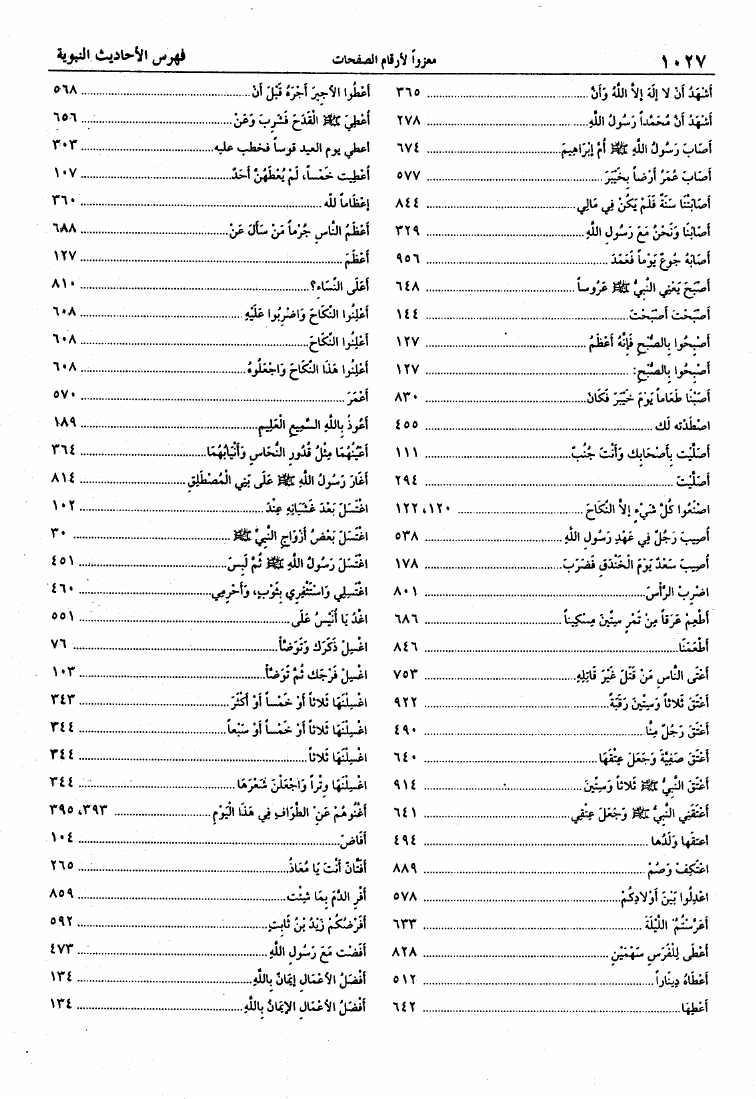 ١٠٢٧ معزواً لأرقام الصفحات فهرس الأحاديث النبوية
أَشْهَدُ أَنْ لا إِلَهَ إِلاَّ اللَّهُ وَأَنَّ ٣٦٥
أَشْهَدُ أَنَّ مُحَمَّداً رَسُولُ اللَّهِ ٢٧٨
أَصَابَ رَسُولُ اللَّهِ ﷺ أُمَّ إِبْرَاهِيمَ ٦٧٤
أَصَابَ عُمَرُ أَرْضاً بِخَيْبَرَ ٥٧٧
أَصَابَتْنَا سَنَةٌ فَلَمْ يَكُنْ فِي مَالِي ٨٤٤
أَصَابَنَا وَنَحْنُ مَعَ رَسُولِ اللَّهِ ٣٢٩
أَصَابَهُ جُوعٌ يَوْماً فَعَمَدَ ٩٥٦
أَصْبَحَ يَعْنِي النَّبِيُّ ﷺ عَرُوساً ٦٤٨
أَصْبَحْتَ أَصْبَحْتَ ١٤٤
أَصْبِحُوا بِالصُّبْحِ فَإِنَّهُ أَعْظَمُ ١٢٧
أَصْبِحُوا بِالصُّبْحِ: ١٢٧
أَصَبْنَا طَعَاماً يَوْمَ خَيْبَرَ فَكَانَ ٨٣٠
اصْطَدْته لَك ٤٥٥
أَصَلَّيْتَ بِأَصْحَابِك وَأَنْتَ جُنُبٌ ١١١
أَصَلَّيْتَ ٢٩٤
اصْنَعُوا كُلَّ شَيْءٍ إِلاَّ النِّكَاحَ ١٢٠، ١٢٢
أُصِيبَ رَجُلٌ فِي عَهْدِ رَسُولِ اللَّهِ ٥٣٨
أُصِيبَ سَعْدٌ يَوْمَ الْخَنْدَقِ فَضَرَبَ ١٧٨
اضْرِبْ الرَّأْسَ ٨٠١
أَطْعِمْ عَرَقاً مِنْ تَمْرٍ سِتِّينَ مِسْكِيناً ٦٨٦
أَطْعَمَنَا ٨٤٦
أَعْتَى النَّاسِ مَنْ قَتَلَ غَيْرَ قَاتِلِهِ ٧٥٣
أَعْتَقَ ثَلاثاً وَسِتِّينَ رَقَبَةً ٩٢٢
أَعْتَقَ رَجُلٌ مِنَّا ٤٩٠
أَعْتَقَ صَفِيَّةَ وَجَعَلَ عِتْقَهَا ٦٤٠
أَعْتَقَ النَّبِيُّ ﷺ ثَلاثاً وَسِتِّينَ ٩١٤
أَعْتَقَنِي النَّبِيُّ ﷺ وَجَعَلَ عِتْقِي ٦٤١
اعتقها وَلَدُها ٤٩٤
اعْتَكِفْ وَصُمْ ٨٨٩
اعْدِلُوا بَيْنَ أَوْلادِكُمْ ٥٧٨
أَعَرَّسْتُمْ اللَّيْلَةَ ٦٣٣
أَعْطَى لِلْفَرَسِ سَهْمَيْنِ ٨٢٨
أَعْطَاهُ دِينَاراً ٥١٢
أَعْطِهَا ٦٤٢
أَعْطُوا الأَجِيرَ أَجْرَهُ قَبْلَ أَنْ ٥٦٨
أُعْطِيَ ﷺ الْقَدَحَ فَشَرِبَ وَعَنْ ٦٥٦
اعطي يوم العيد قوساً فخطب عليه ٣٠٣
أُعْطِيت خَمْساً، لَمْ يُعْطَهُنَّ أَحَدٌ ١٠٧
إِعْظَاماً لله ٣٦٠
أَعْظَمُ النَّاسِ جُرْماً مَنْ سَأَلَ عَنْ ٦٨٨
أَعْظَمَ ١٢٧
أَعَلَى النِّسَاءِ؟ ٨١٠
أَعْلِنُوا النِّكَاحَ وَاضْرِبُوا عَلَيْهِ ٦٠٨
أَعْلِنُوا النِّكَاحَ ٦٠٨
أَعْلِنُوا هَذَا النِّكَاحَ وَاجْعَلُوهُ ٦٠٨
أَعْمَرَ ٥٧٠
أَعُوذُ بِاللَّهِ السَّمِيعِ الْعَلِيمِ ١٨٩
أَعْيُنُهُمَا مِثْلُ قُدُورِ النُّحَاسِ وَأَنْيَابُهُمَا ٣٦٤
أَغَارَ رَسُولُ اللَّهِ ﷺ عَلَى بَنِي الْمُصْطَلِقِ ٨١٤
اغْتَسَلَ بَعْدَ غَشَيَانِهِ عِنْدَ ١٠٢
اغْتَسَلَ بَعْضُ أَزْوَاجِ النَّبِيِّ ﷺ ٣٠
اغْتَسَلَ رَسُولُ اللَّهِ ﷺ ثُمَّ لَبِسَ ٤٥١
اغْتَسِلِي وَاسْتَثْفِرِي بِثَوْبٍ، وَأَحْرِمِي ٤٦٠
اغْدُ يَا أُنَيْسُ عَلَى ٥٥١
اغْسِلْ ذَكَرَك وَتَوَضَّأْ ٧٦
اغْسِلْ فَرْجَك ثُمَّ تَوَضَّأْ ١٠٣
اغْسِلْنَهَا ثَلاثاً أَوْ خَمْساً أَوْ أَكْثَرَ ٣٤٣
اغْسِلْنَهَا ثَلاثاً أَوْ خَمْساً أَوْ سَبْعاً ٣٤٤
اغْسِلْنَهَا ثَلاثاً ٣٤٤
اغْسِلْنَهَا وِتْراً وَاجْعَلْنَ شَعْرَهَا ٣٤٤
أَغْنُوهُمْ عَنِ الطَّوَافِ فِي هَذَا الْيَوْمِ ٣٩٣، ٣٩٥
أَفَاضَ ١٠٤
أَفَتَّانٌ أَنْتَ يَا مُعَاذُ ٢٦٥
أَفْرِ الدَّمَ بِمَا شِئْتَ ٨٥٩
أَفْرَضُكُمْ زَيْدُ بْنُ ثَابِتٍ ٥٩٢
أَفَضْت مَعَ رَسُولِ اللَّهِ ٤٧٣
أَفْضَلُ الأَعْمَالِ إِيمَانٌ بِاللَّهِ ١٣٤
أَفْضَلُ الأَعْمَالِ الإِيمَانُ بِاللَّهِ ١٣٤